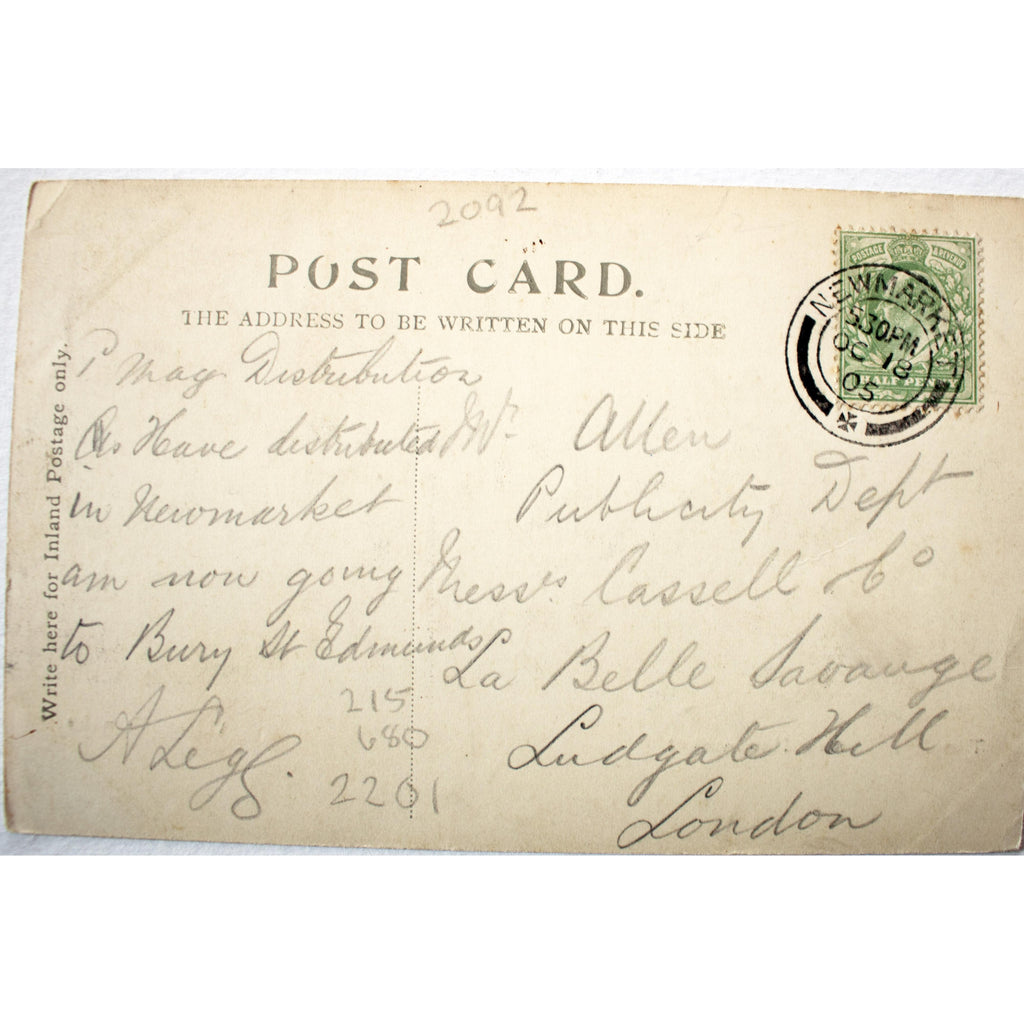 2092
POST CARD.
THE ADDRESS TO BE WRITTEN ON THIS SIDE
Write here for Inland Postage only.
P Mag Distribution
As Have distributed
in Newmarket
am now going
to Bury St Edmunds
A Legg.
215
680
2201
Mr. Allen
Publicity Dept
Messrs Cassell & Co
La Belle Savauge
Ludgate Hill
London
POSTAGE
HALF PENNY
NEWMARKET
530PM
OC 18
05